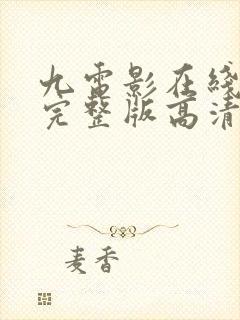 九雷影在线
完整版高清
麦香